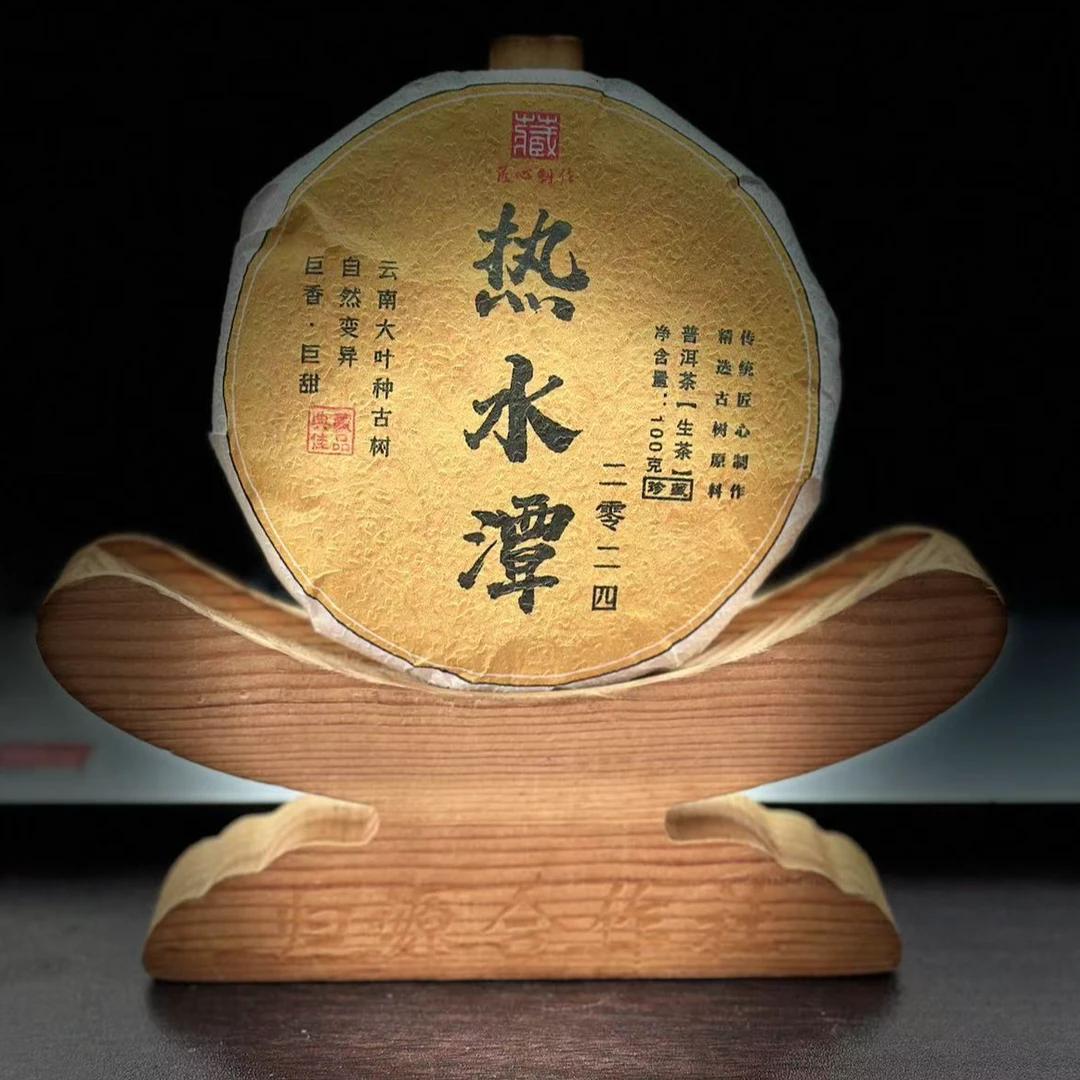 藏
匠心制作
热水潭
二零二四
传统匠心制作
精选古树原料
普洱茶【生茶】
净含量：100克
珍藏
云南大叶种古树
自然变异
巨香·巨甜
藏品
典佳
归源合作社